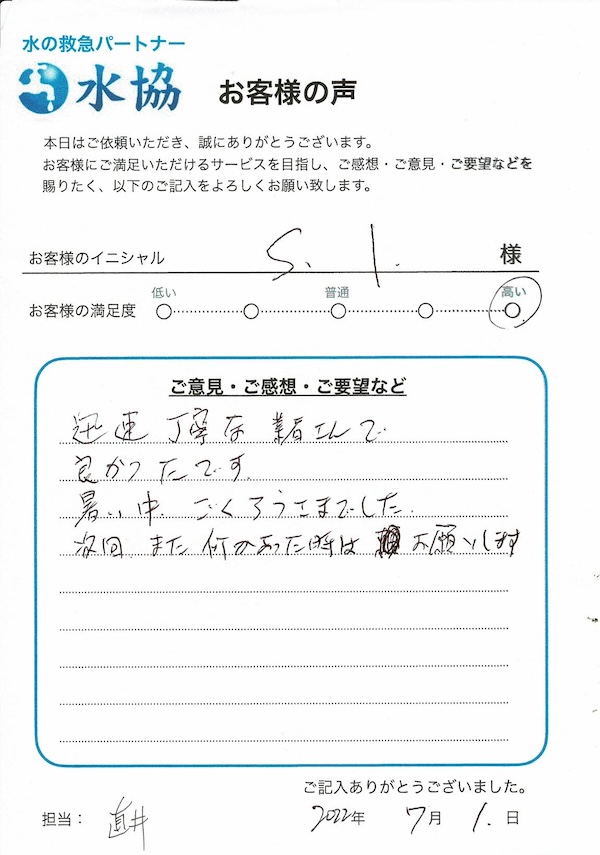 水の救急パートナー
水協 お客様の声
本日はご依頼いただき、誠にありがとうございます。
お客様にご満足いただけるサービスを目指し、ご感想・ご意見・ご要望などを
賜りたく、以下のご記入をよろしくお願い致します。
お客様のイニシャル S. I. 様
低い 普通 高い
お客様の満足度
ご意見・ご感想・ご要望など
迅速 丁寧な 業者さんで
良かったです。
暑い中 ごくろうさまでした.
次回 また 何かあった時は お願いします
ご記入ありがとうございました。
担当： 直井 2022年 7月 1.日